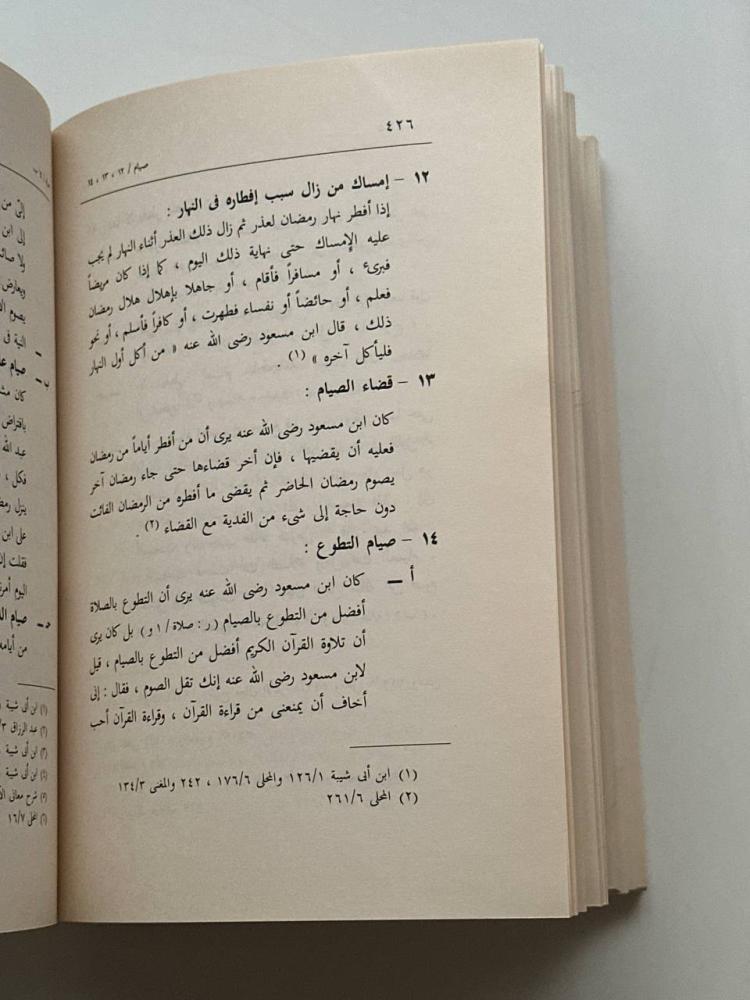 ٤٢٦
صيام / ١٢ ، ١٣ ، ١٤
١٢ – إمساك من زال سبب إفطاره فى النهار :
إذا أفطر نهار رمضان لعذر ثم زال ذلك العذر أثناء النهار لم يجب
عليه الإمساك حتى نهاية ذلك اليوم ، كما إذا كان مريضاً
فبرىء ، أو مسافراً فأقام ، أو جاهلا بإهلال هلال رمضان
فعلم ، أو حائضاً أو نفساء فطهرت ، أو كافراً فأسلم ، أو نحو
ذلك ، قال ابن مسعود رضى الله عنه « من أكل أول النهار
فليأكل آخره » (١) .
١٣ – قضاء الصيام :
كان ابن مسعود رضى الله عنه يرى أن من أفطر أياماً من رمضان
فعليه أن يقضيها ، فإن أخر قضاءها حتى جاء رمضان آخر
يصوم رمضان الحاضر ثم يقضى ما أفطره من الرمضان الفائت
دون حاجة إلى شىء من الفدية مع القضاء (٢) .
١٤ – صيام التطوع :
أ – كان ابن مسعود رضى الله عنه يرى أن التطوع بالصلاة
أفضل من التطوع بالصيام ( ر : صلاة / ١ و ) بل كان يرى
أن تلاوة القرآن الكريم أفضل من التطوع بالصيام ، قيل
لابن مسعود رضى الله عنه إنك تقل الصوم ، فقال : إنى
أخاف أن يمنعنى من قراءة القرآن ، وقراءة القرآن أحب
(١) ابن أبى شيبة ١٢٦/١ والمحلى ١٧٦/٦ ، ٢٤٢ والمغنى ١٣٤/٣
(٢) المحلى ٢٦١/٦
إلىّ من
إلى ابن
ولا صائ
ويعارض
يصوم
النية فى
ب – صيام
كان
بافتراض
عبد الله
فكل ،
ينزل
على ابن
فقلت
اليوم
صيام
من أيامه
(١) ابن أبى شيبة
(٢) عبد الرزاق
(٣) ابن أبى شيبة
(٤) ابن أبى شيبة
(٥) شرح معانى
(٦) المحلى ١٦/٧